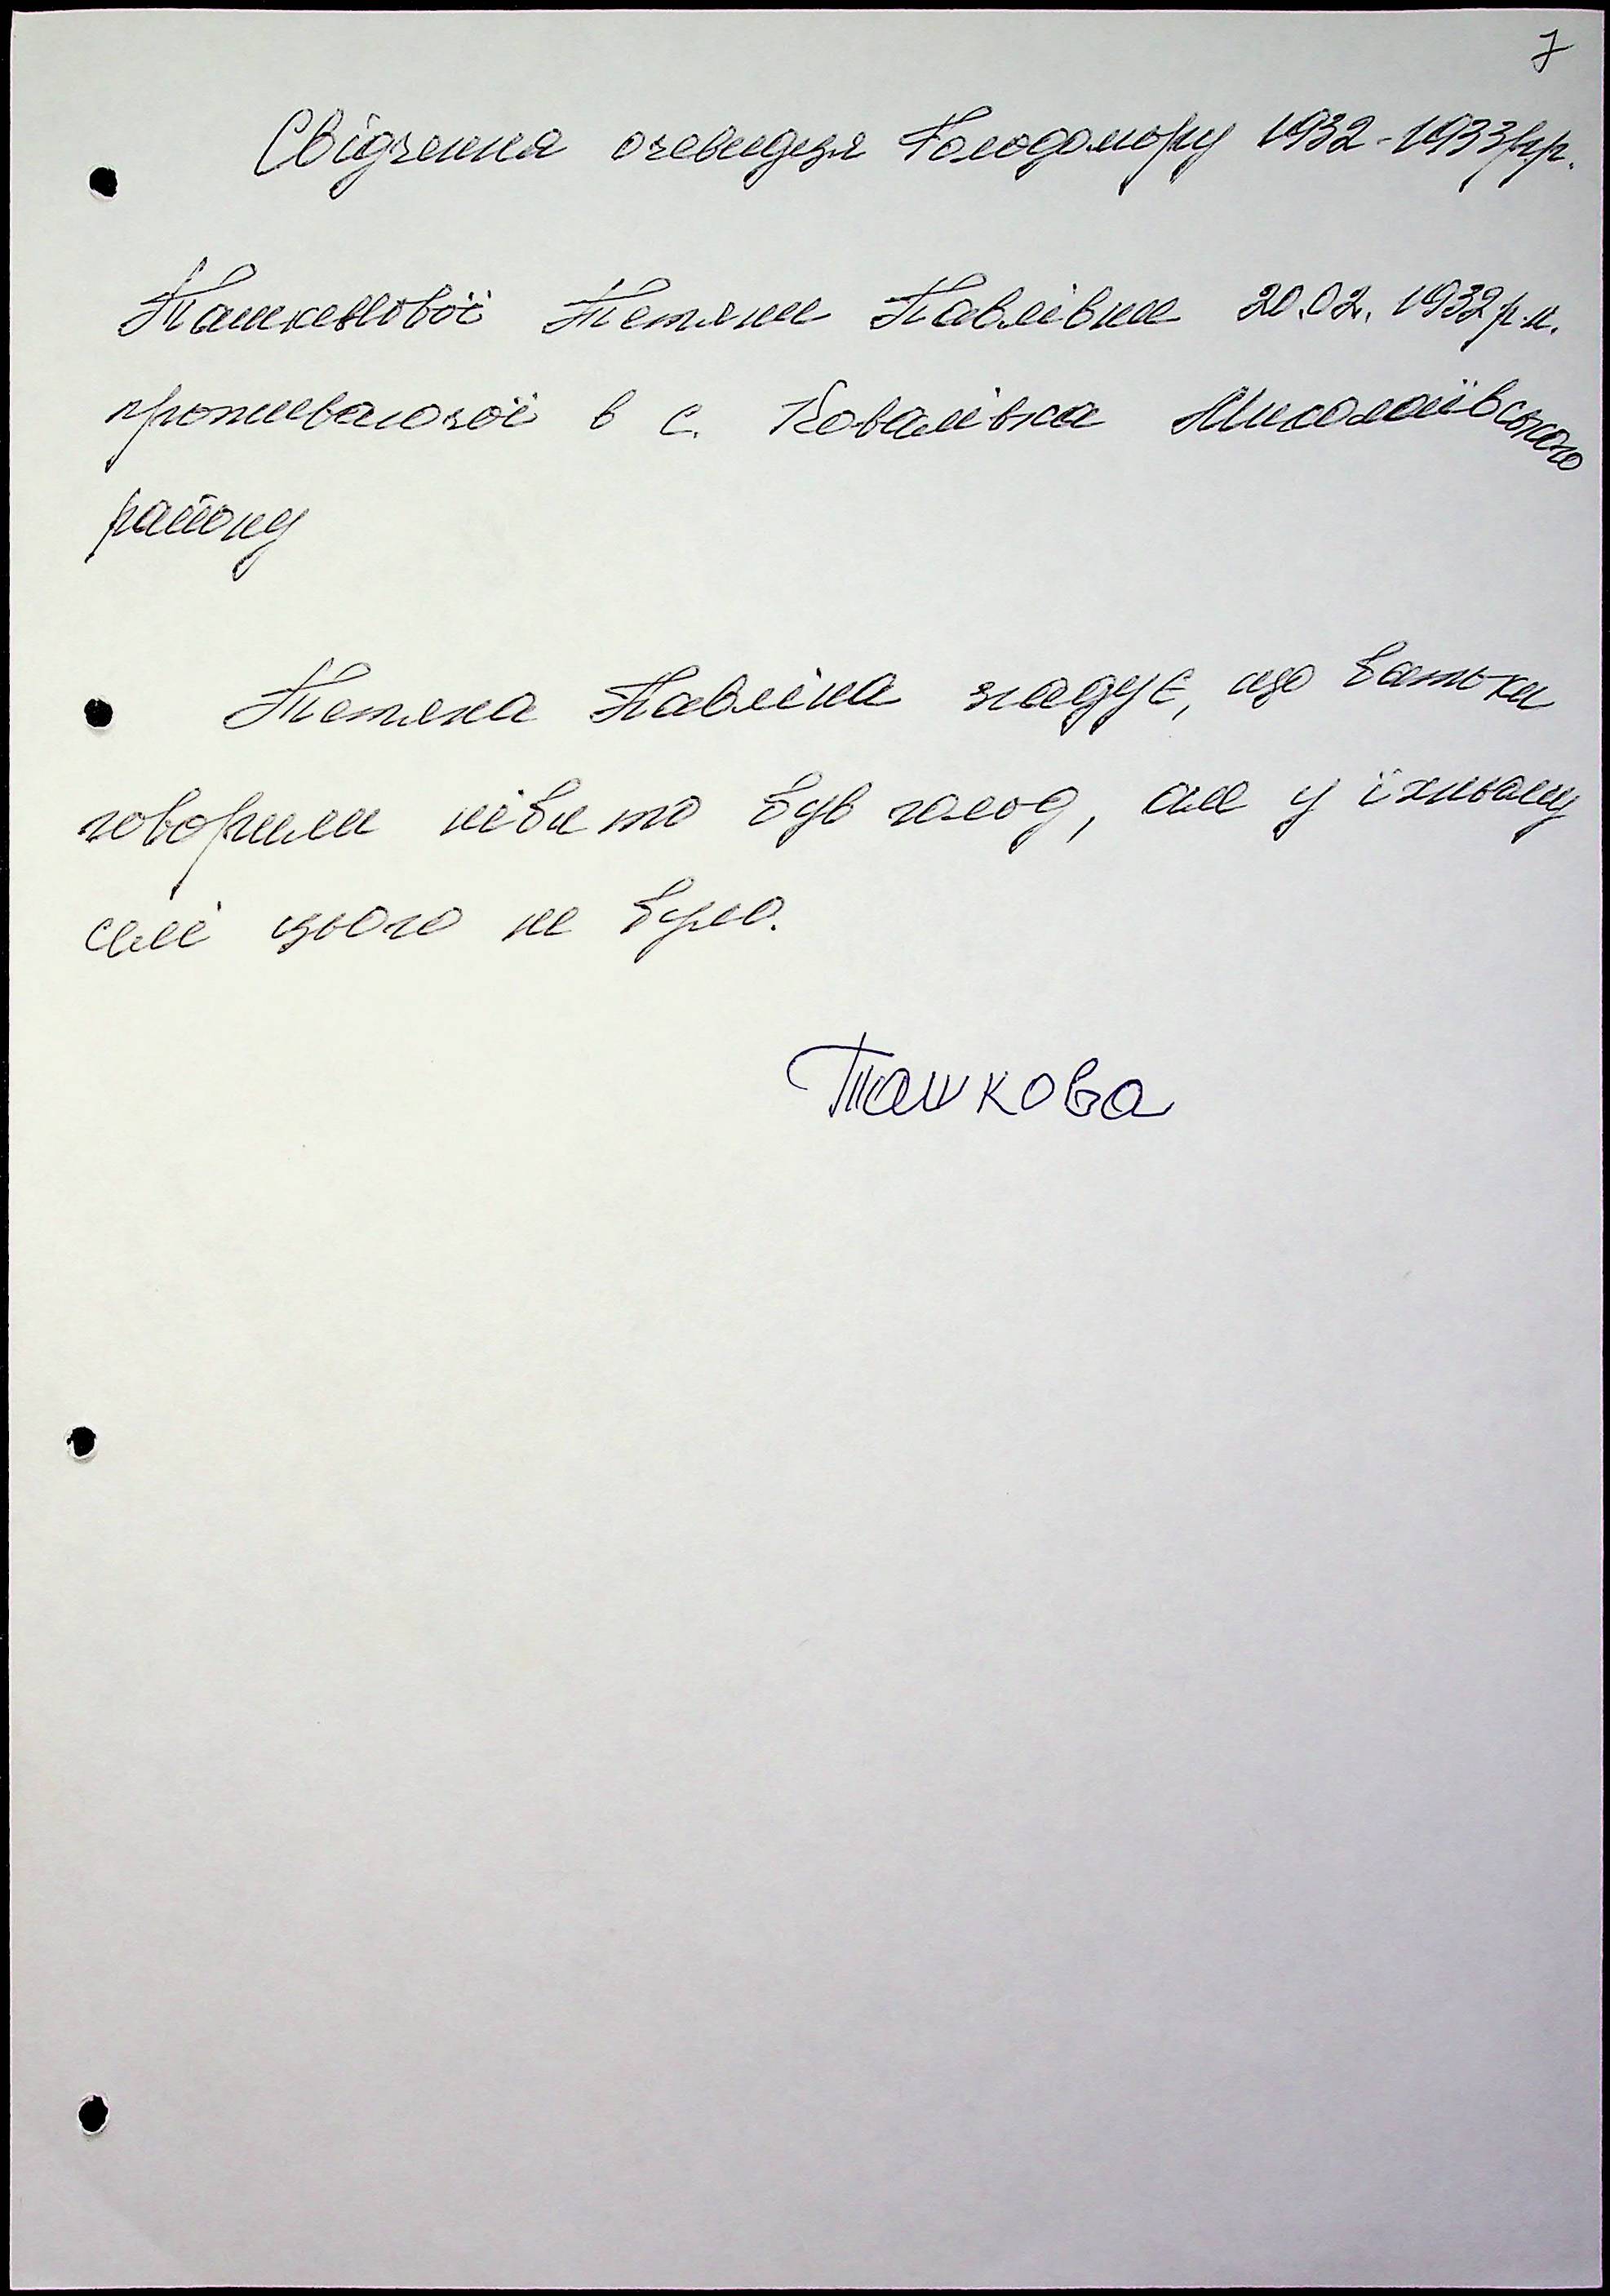 7
Свідчення очевидця Голодомору 1932-1933рр.
Тетяни Павлівни 20.02.1932р.н.
проживаючої в с. Ковалівка Миколаївського
району
Тетяна Павліна згадує, що батьки
говорили ніби то був голод, але у їхньому
селі цього не було.
Ташкова